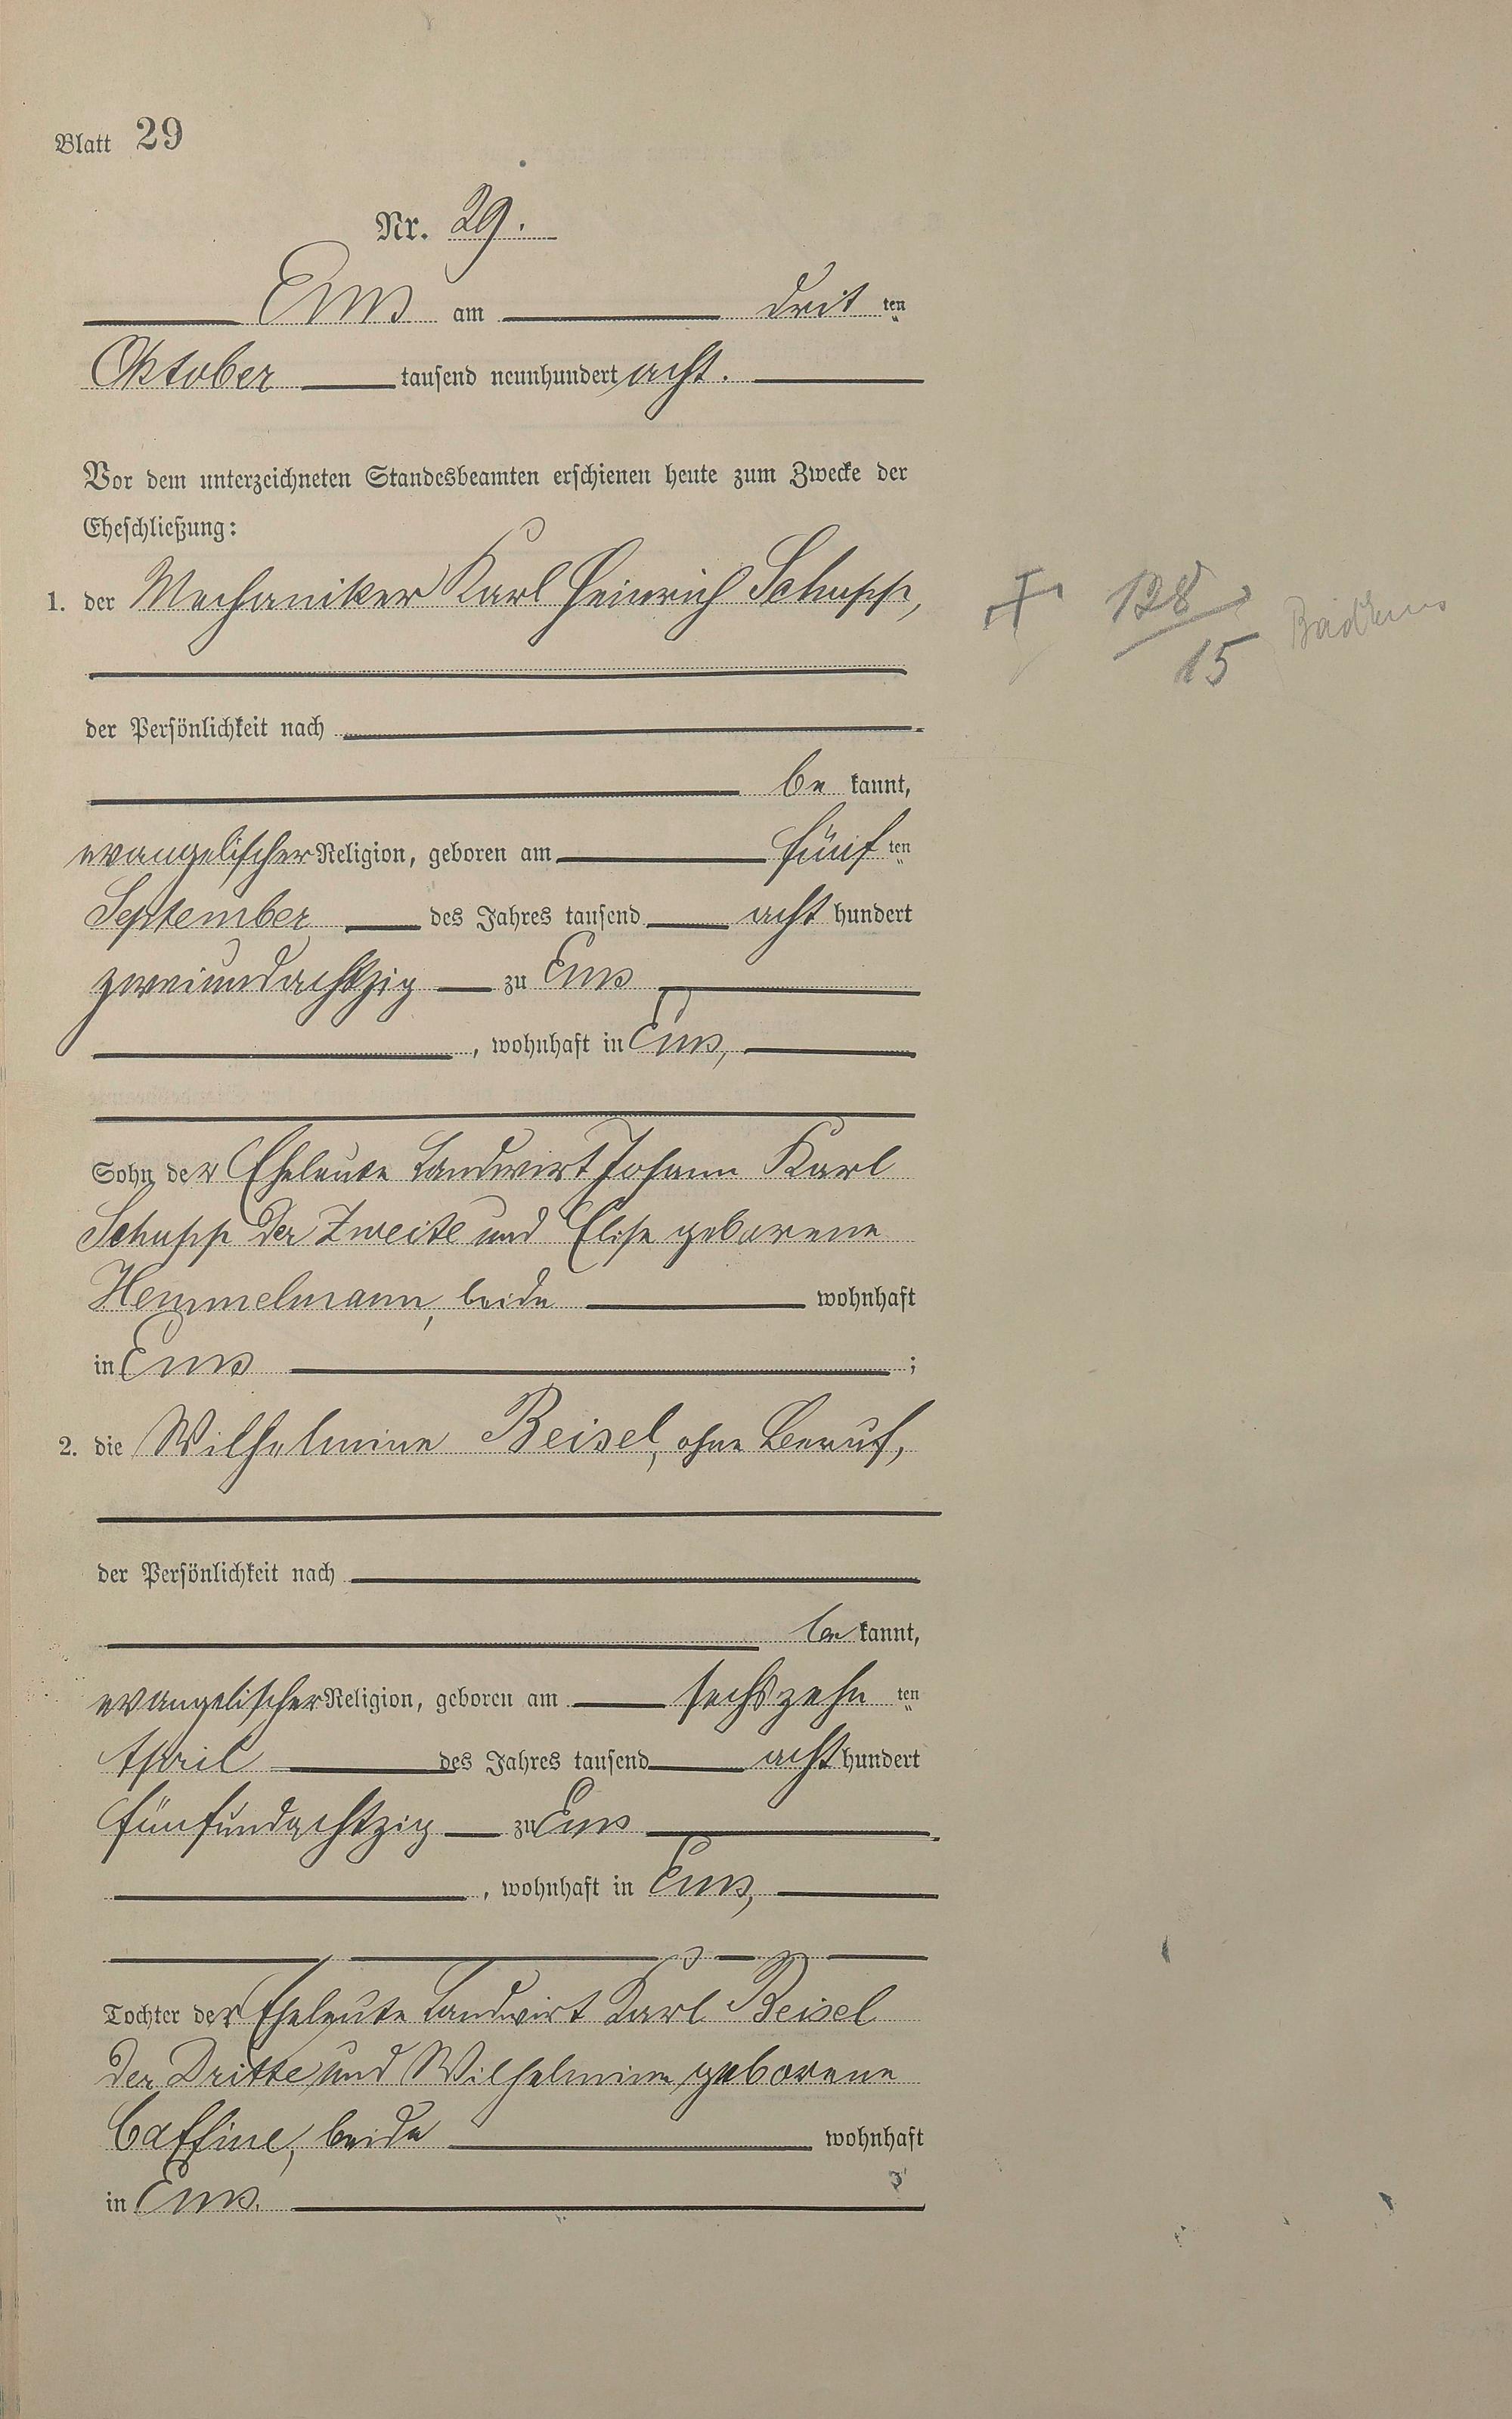 Blatt 29
Nr. 29.
Ems am drit ten
Oktober tausend neunhundert acht.
Vor dem unterzeichneten Standesbeamten erschienen heute zum Zwecke der
Eheschließung:
1. der Mechaniker Karl Heinrich Schupp,
† 128 / 15 Bad Ems
der Persönlichkeit nach
be kannt,
evangelischer Religion, geboren am fünf ten
September des Jahres tausend acht hundert
zweiundachtzig zu Ems
, wohnhaft in Ems,
Sohn der Eheleute Landwirt Johann Karl
Schupp der Zweite und Elise geborene
Hemmelmann, beide wohnhaft
in Ems ;
2. die Wilhelmine Beisel, ohne Beruf,
der Persönlichkeit nach
be kannt,
evangelischer Religion, geboren am sechszehn ten
April des Jahres tausend acht hundert
fünfundachtzig zu Ems
, wohnhaft in Ems,
Tochter der Eheleute Landwirt Karl Beisel
der Dritte und Wilhelmine geborene
beide wohnhaft
in Ems.